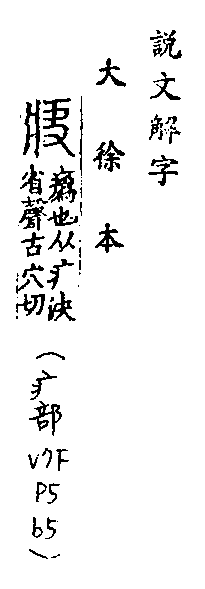 說文解字
大徐本
疦
也从疒決
省聲古穴切
(疒部
V7F
P5
b5)